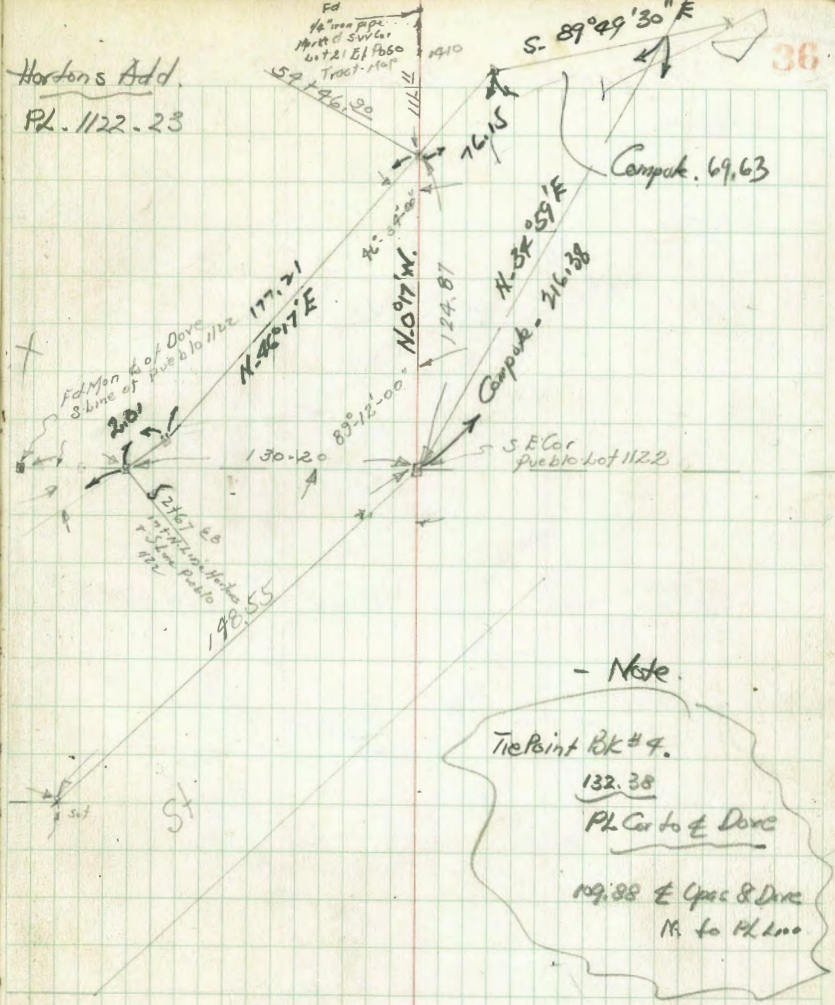 36
Hortons Add.
PL. 1122.23
Fd
3/4" iron pipe
Marked S.W. Cor
Lot 21 El Poso
Tract-Map
1410
54+46.20
111.11
S- 89°49'30" E
76.15
Compute. 69.63
N-34°59'E
Compute - 216.38
N-0°17'W.
124.87
177.21
N-46°17'E
Fd. Mon ℄ of Dove
S-Line of pueblo 1122
2.31
130.20
89°-12'-00"
S E Cor
Pueblo Lot 1122
52+67.68
int. N. Line Hortons
S. Line Pueblo
1122
198.55
Set
St
- Note.
Tie Point BK #4.
132.38
PL Cor to ℄ Dove
109.88 ℄ & Dove
N. to PL